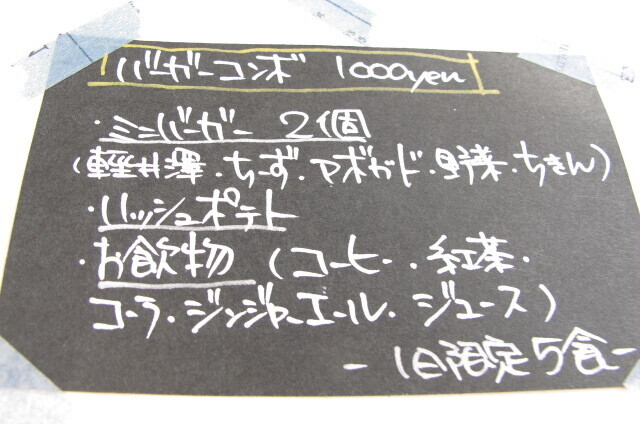 バーガーコンボ 1000yen
・ミニバーガー 2個
(軽井澤・ちーず・アボガド・野菜・ちきん)
・ハッシュポテト
・お飲物 (コーヒー・紅茶・
コーラ・ジンジャーエール・ジュース)
-1日限定5食-